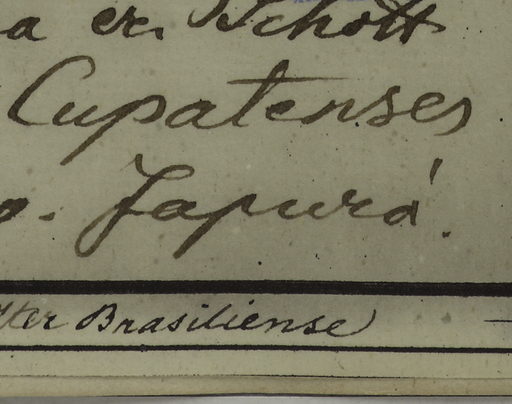 a er. Schott
Cupatenses
o. Japurá.
Iter Brasiliense